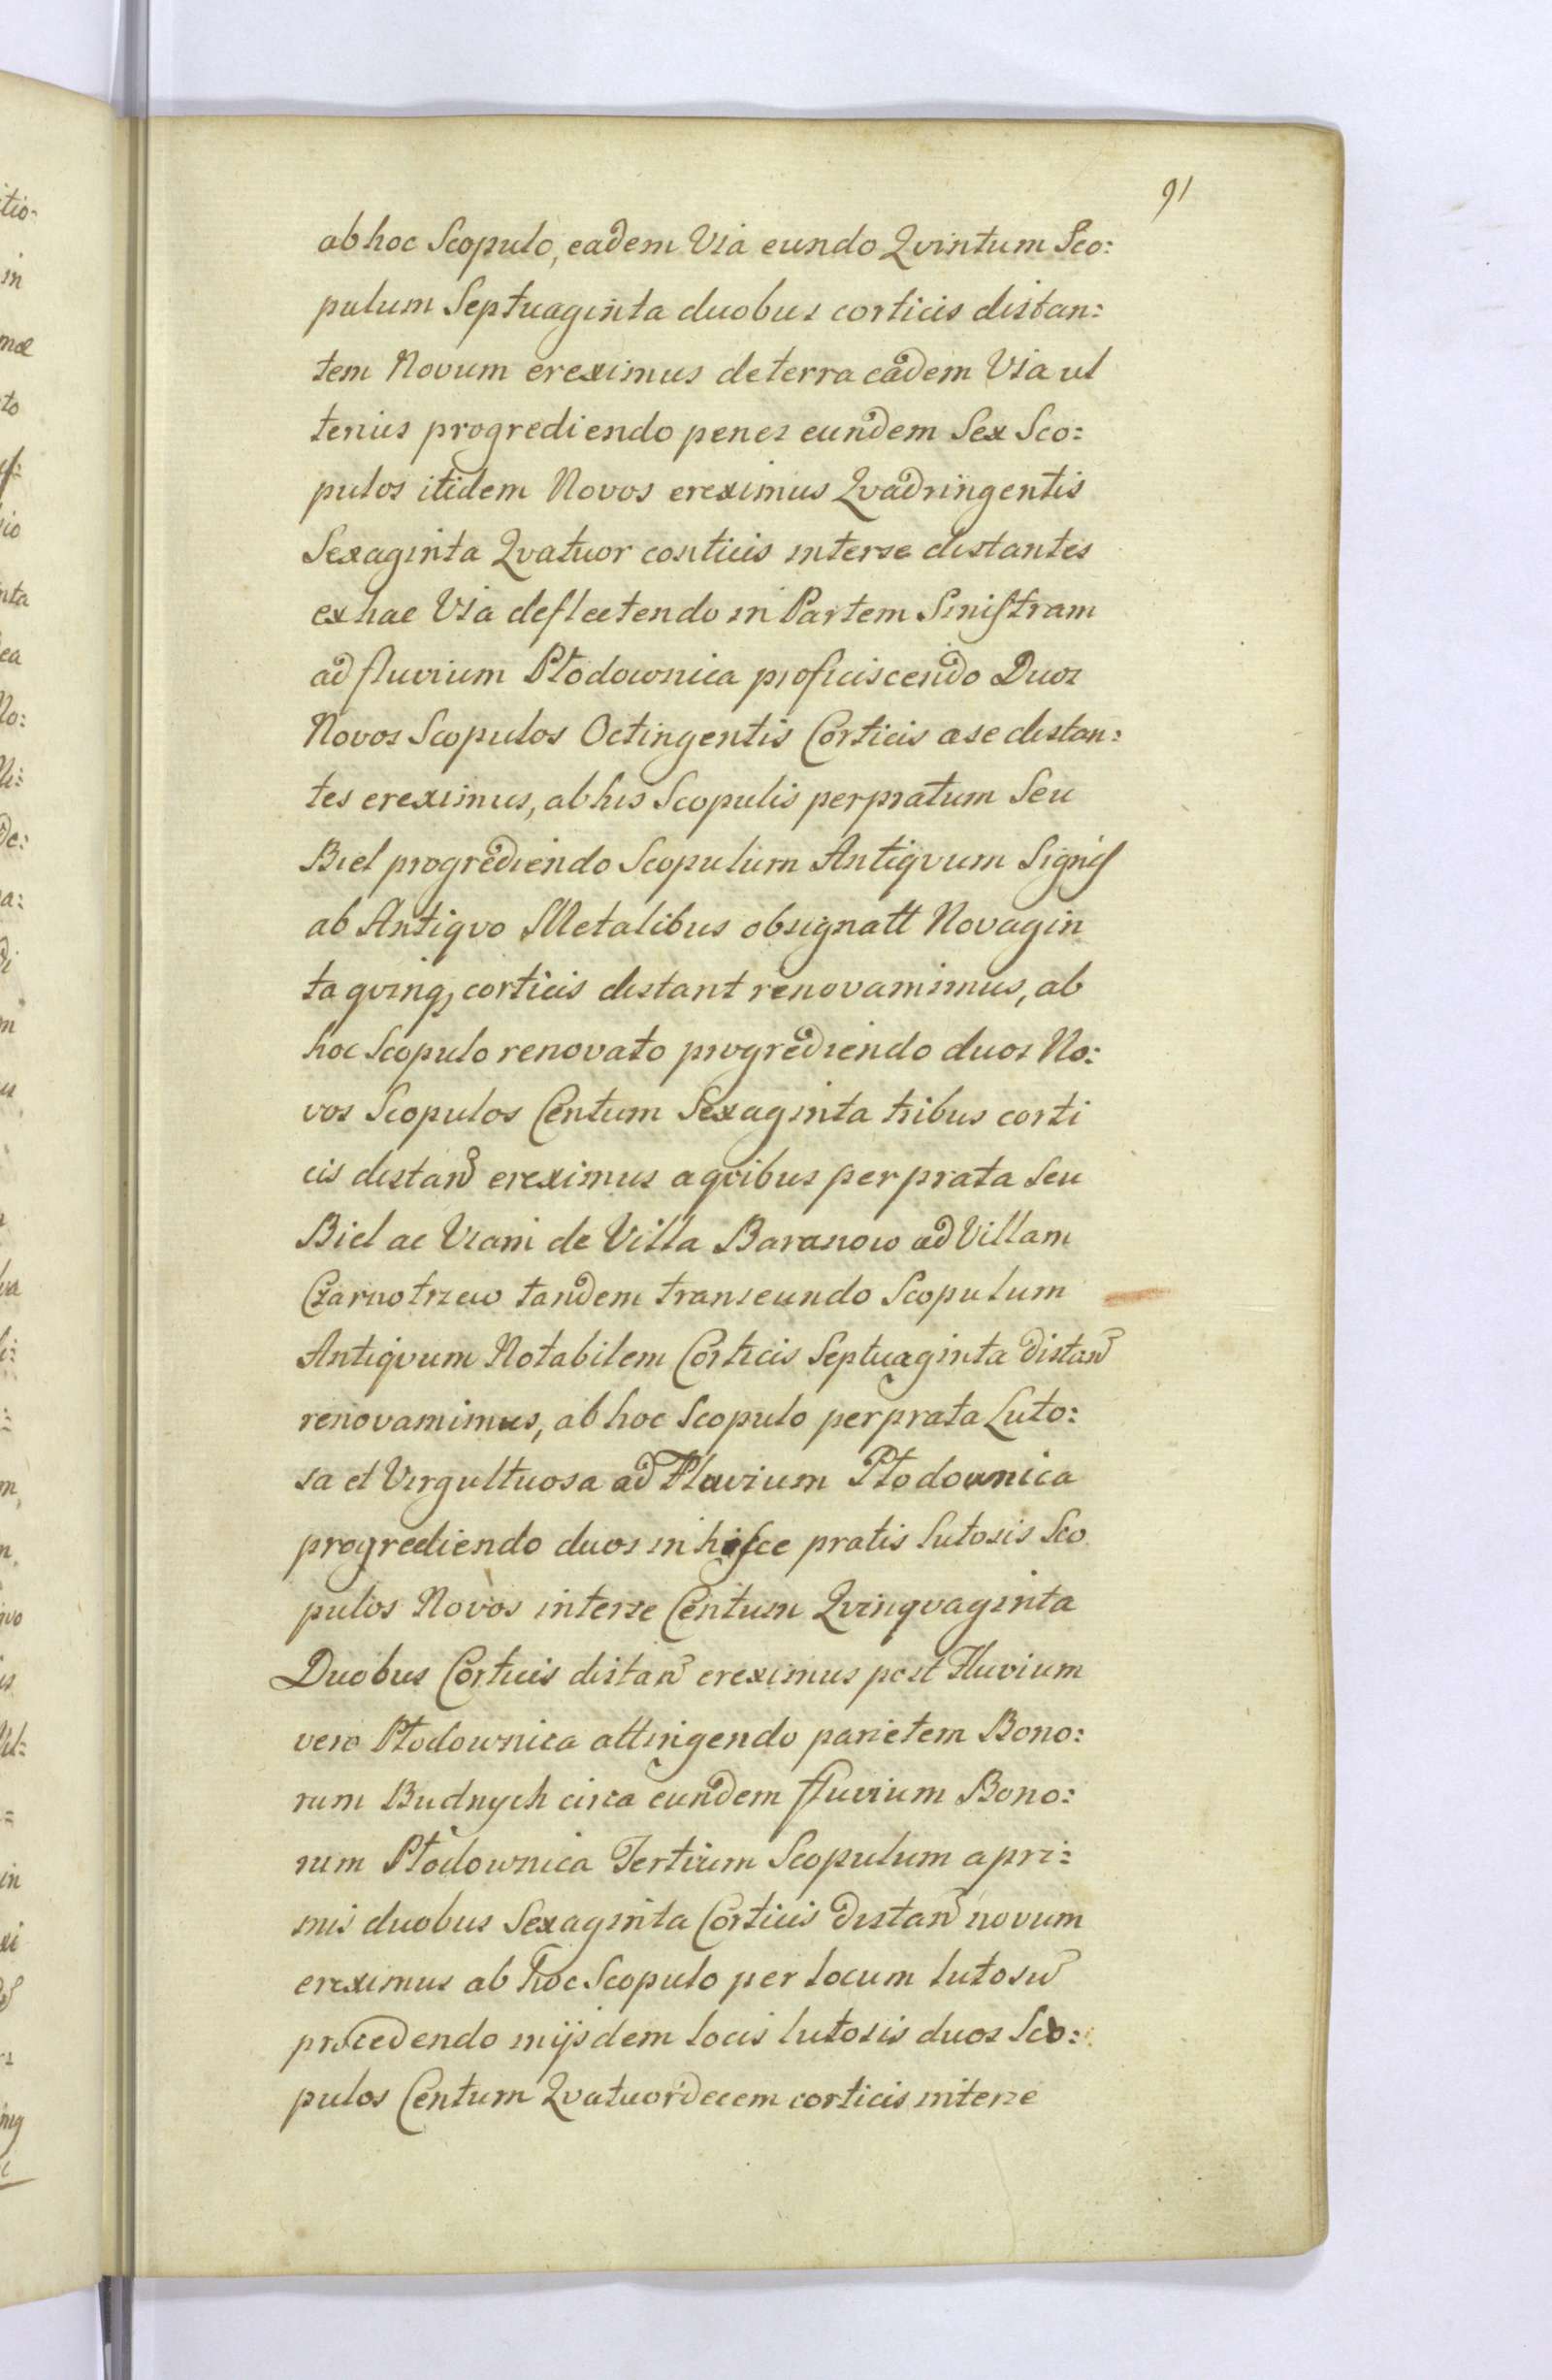 91
ab hoc Scopulo, eadem Via eundo Qvintum Sco:
pulum Septuaginta duobus corticis distan:
tem Novum ereximus de terra eadem Via ul
terius progrediendo penes eundem Sex Sco:
pulos itidem Novos ereximus Qvadringentis
Sexaginta Qvatuor corticis inter se distantes
ex hac Via deflectendo in Partem Sinistram
ad fluvium Płodownica proficiscendo Duos
Novos Scopulos Octingentis Corticis a se distan:
tes ereximus, ab his Scopulis per pratum Seu
Biel progrediendo Scopulum Antiqvum Signis
ab Antiqvo Metalibus obsignatt Novagin
ta qvinq, corticis distant renovamimus, ab
hoc Scopulo renovato progrediendo duos No:
vos Scopulos Centum Sexaginta tribus corti
cis distan ereximus a qvibus per prata Seu
Biel ac Viam de Villa Baranow ad Villam
Czarnotrzew tandem transeundo Scopulum
Antiqvum Notabilem Corticis Septuaginta distan
renovamimus, ab hoc Scopulo per prata Luto:
sa et Virgultuosa ad Fluvium Płodownica
progrediendo duos in hisce pratis lutosis Sco
pulos Novos inter se Centum Qvinqvaginta
Duobus Corticis distan ereximus post Fluvium
vero Płodownica attingendo parietem Bono:
rum Budnych circa eundem fluvium Bono:
rum Płodownica Tertium Scopulum a pri:
mis duobus Sexaginta Corticis distan novum
ereximus ab hoc Scopulo per locum lutosu
procedendo in ijsdem locis lutosis duos Sco:
pulos Centum Qvatuordecem corticis inter se